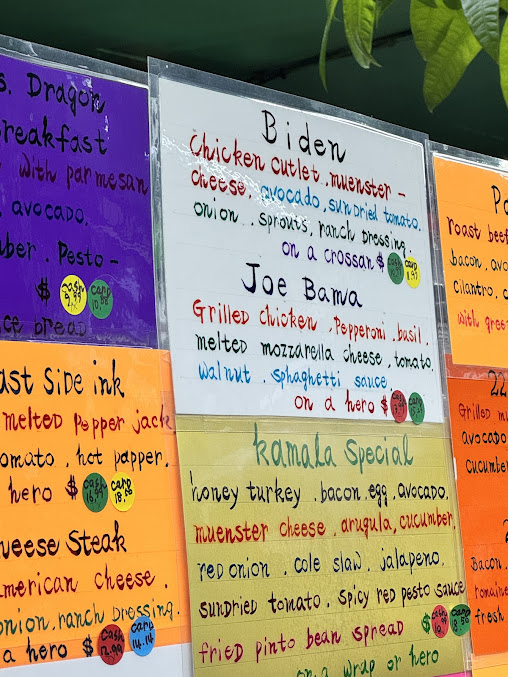 s, Dragon
reakfast
with parmesan
, avocado,
ber. Pesto -
$ cash 9.99 card
bread
ast Side ink
melted Pepper jack
omato, hot papper,
hero $ cash 16.99 card
heese Steak
merican cheese,
onion, ranch Dressing.
a hero $ cash 12.99 card 14.14
Biden
Chicken cutlet, muenster -
cheese, avocado, sundried tomato,
onion, sprouts, ranch Dressing.
on a crossan $ card
Joe Bama
Grilled chicken, Pepperoni, basil,
melted mozzarella cheese, tomato,
walnut, sphaghetti sauce
on a hero $ cash card
kamala Special
honey turkey, bacon, egg, avocado,
muenster cheese, arugula, cucumber,
red onion, cole slaw, jalapeno,
sundried tomato, spicy red pesto sauce
fried pinto bean spread $ cash card
on a wrap or hero
Roast beef
bacon, avo
cilantro, c
with gree
22
Grilled m
avocado
cucumbe
2
Bacon,
romaine
fresh